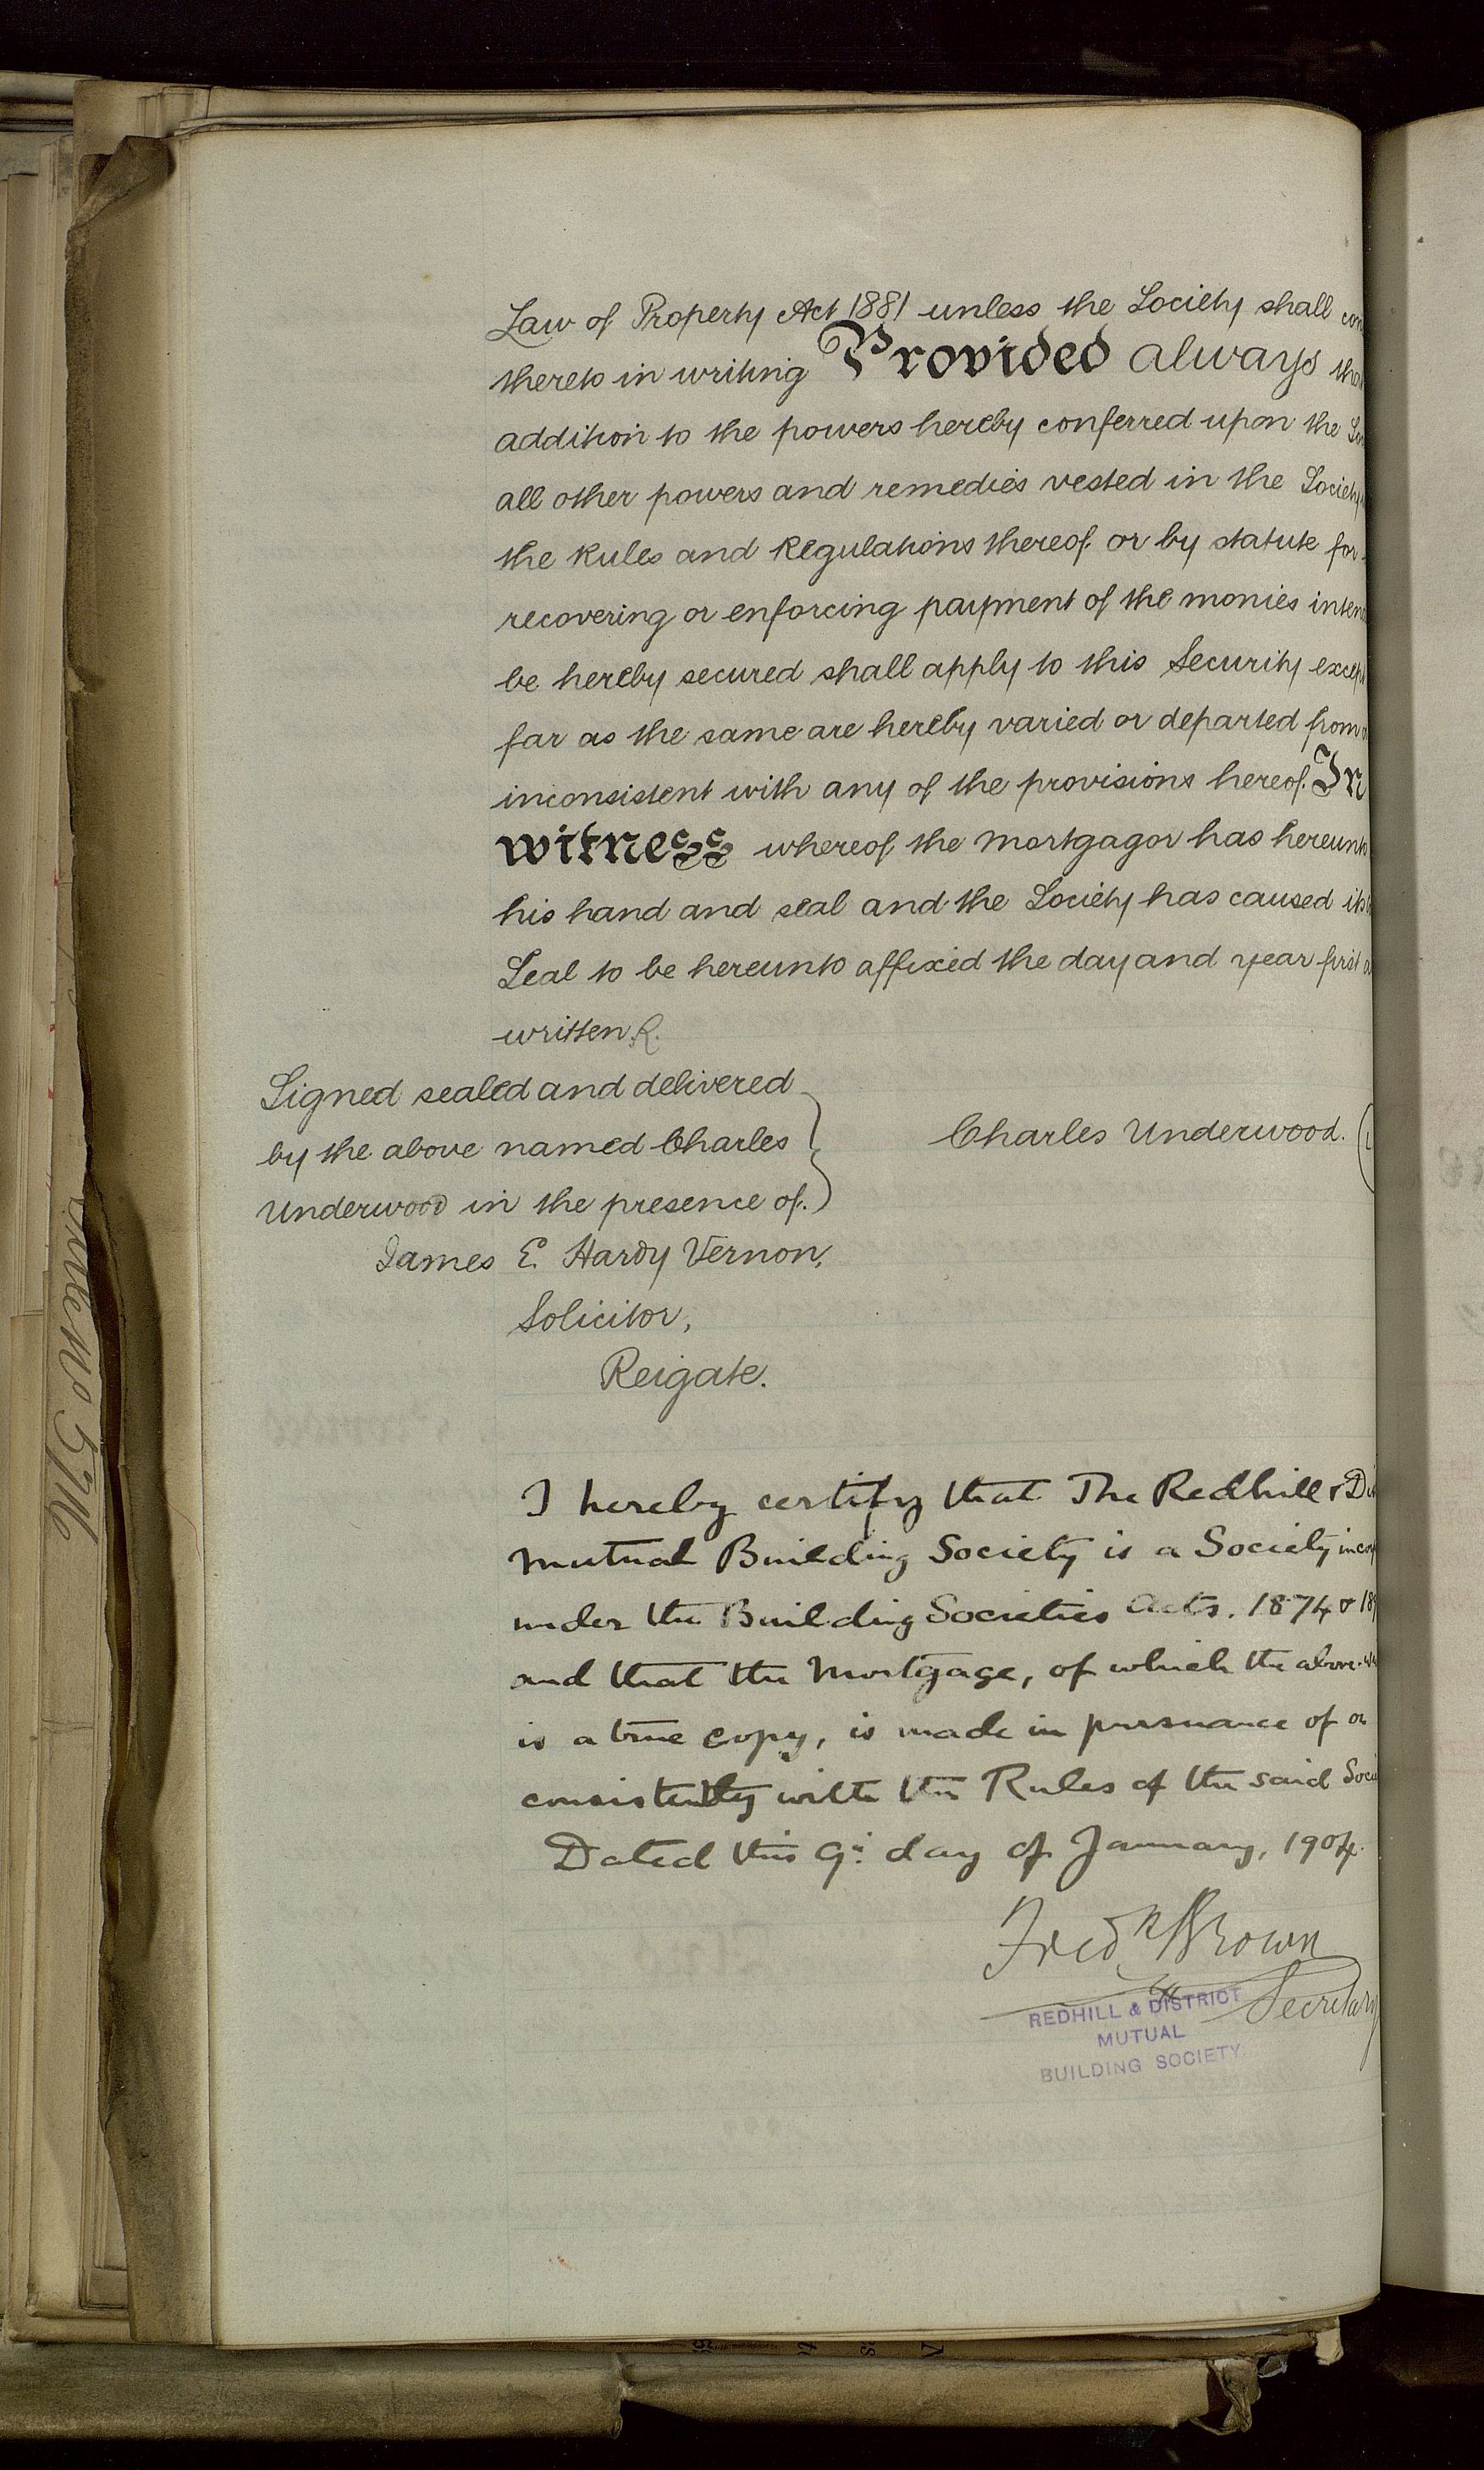 Law of Property Act 1881 unless the Society shall con
thereto in writing Provided always tha
addition to the powers hereby conferred upon the So
all other powers and remedies vested in the Society
the Rules and Regulations thereof or by statute for
recovering or enforcing payment of the monies inten
be hereby secured shall apply to this Security except
far as the same are hereby varied or departed from
inconsistent with any of the provisions hereof. In
witness whereof the Mortgagor has hereunto
his hand and seal and the Society has caused its
Seal to be hereunto affixed the day and year first
written
Signed sealed and delivered
by the above named Charles
Underwood in the presence of.
Charles Underwood. (L
James E. Hardy Vernon,
Solicitor,
Reigate.
I hereby certify that The Redhill & Di
Mutual Building Society is a Society incor
under the Building Societies Acts. 1874 & 189
and that the Mortgage, of which the above
is a true copy, is made in pursuance of or
consistently with the Rules of the said Soci
Dated this 9th day of January, 1904.
Fredk Brown
Secretary
REDHILL & DISTRICT
MUTUAL
BUILDING SOCIETY.